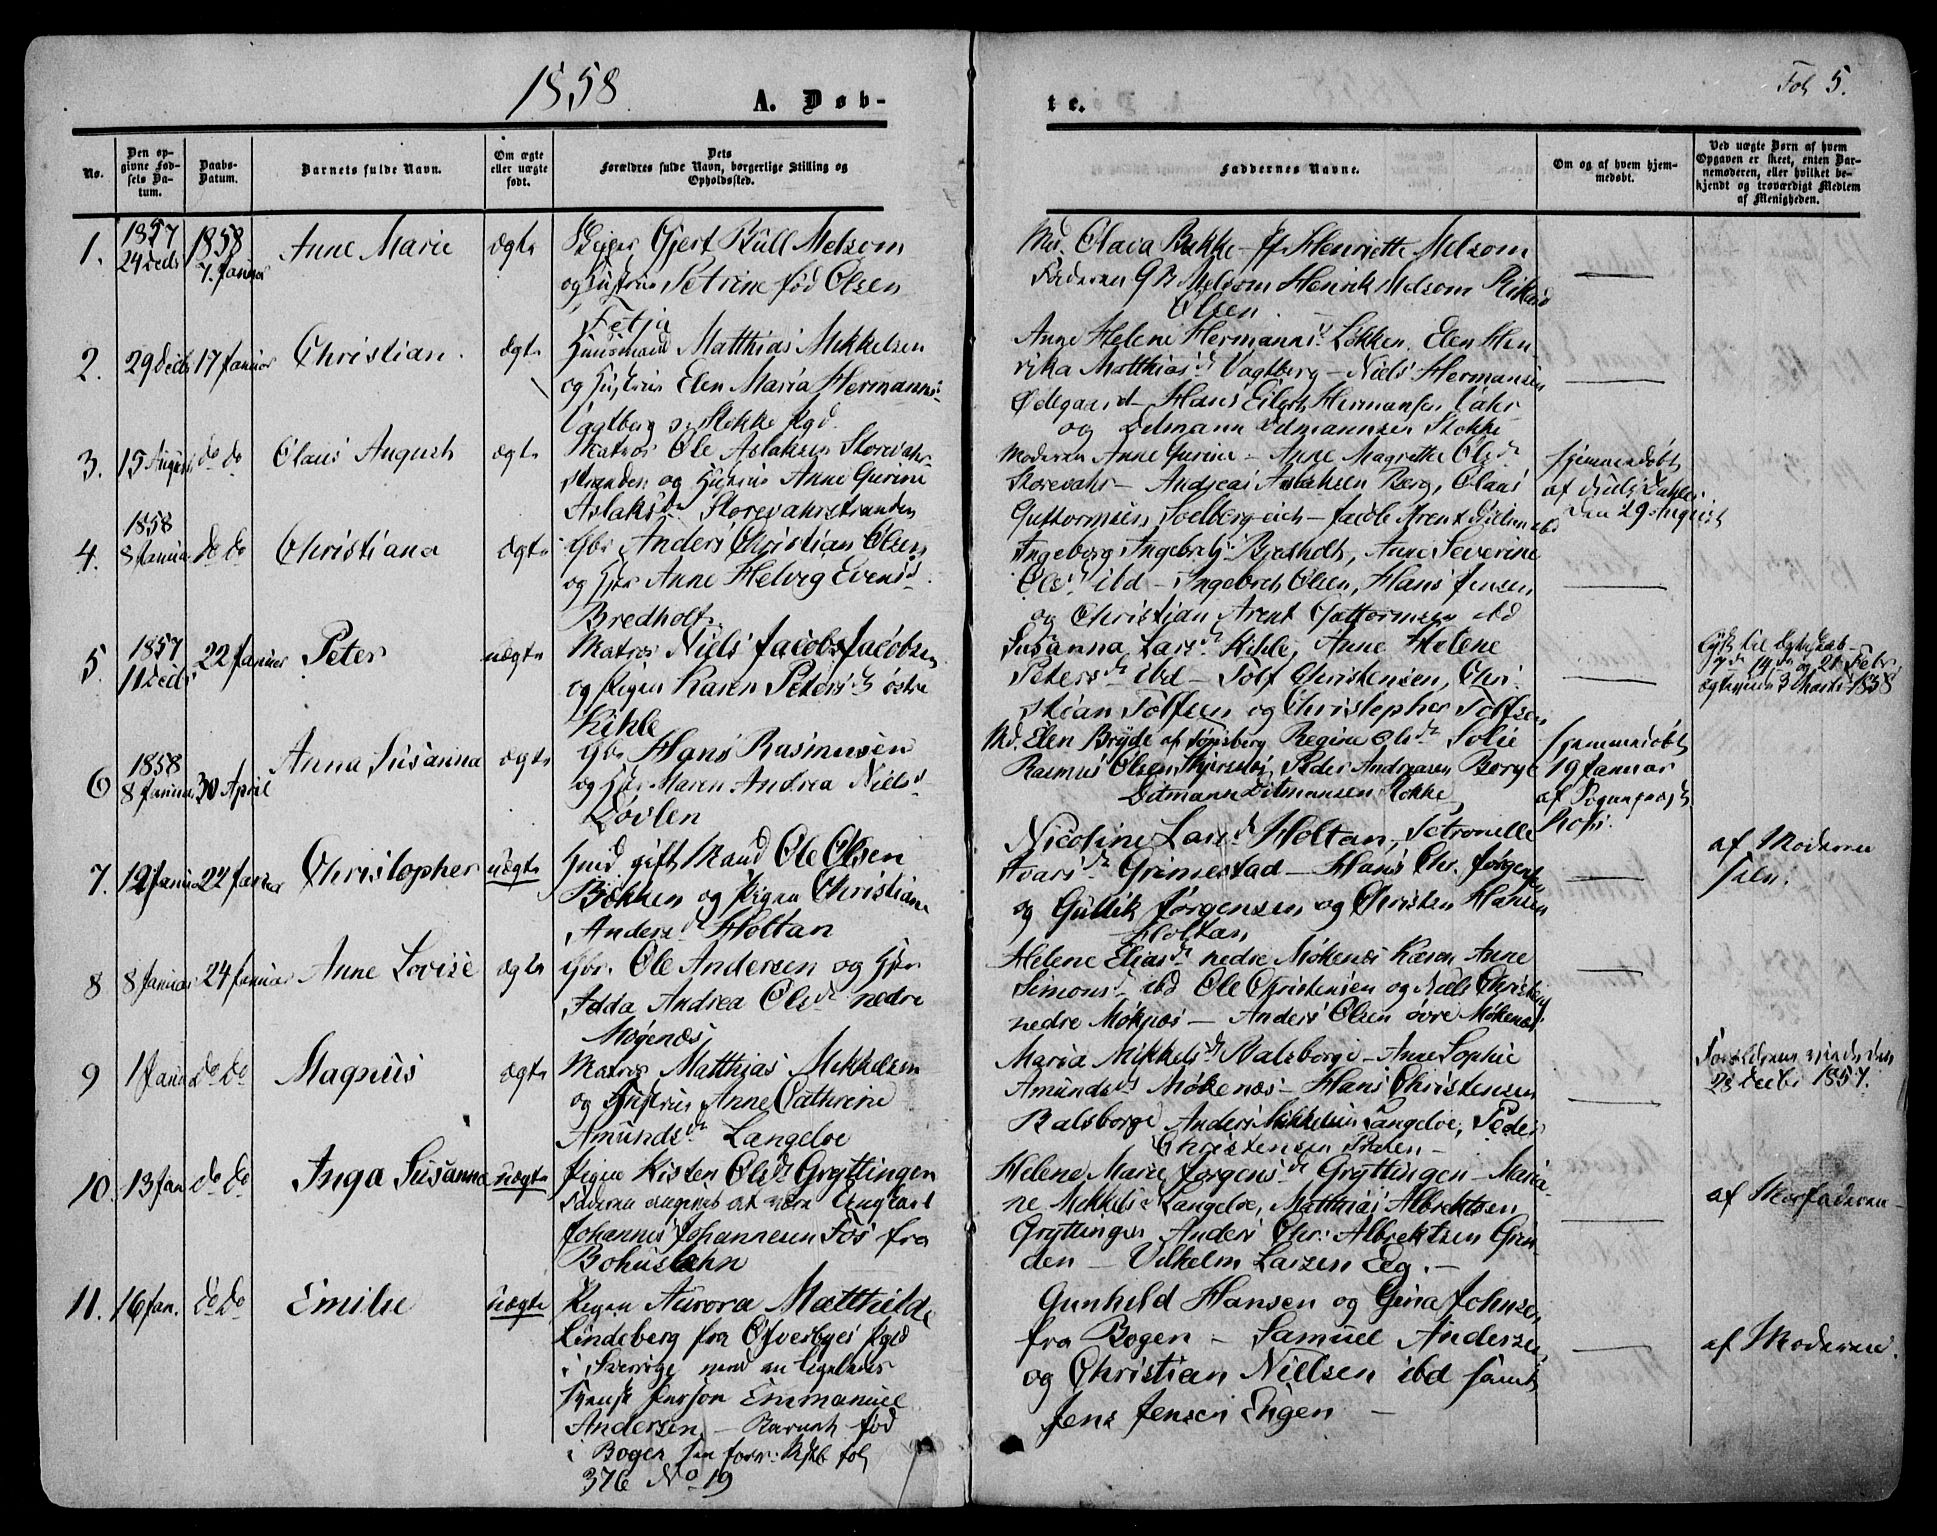 1858
A. Døb-
te.
Fol 5.
No.
Den op-
givne Fød-
sels Da-
tum.
Daabs-
Datum.
Barnets fulde Navn.
Om ægte
eller uægte
født.
Dets
Forældres fulde Navn, borgerlige Stilling og
Opholdssted.
Faddernes Navne.
Om og af hvem hjem-
medøbt.
Ved uægte Børn af hvem
Opgaven er skeet, enten Bar-
nemoderen, eller hvilket be-
kjendt og troværdigt Medlem
af Menigheden.
1.
1857
24 Decbr
1858
7. Januar
Anne Marie
ægte
Gjert Bull Melsom
og Hustrue Petrine fød Olsen
Fetja
Md. Olava Bakke - Jf Henriette Melsom
Faderen G B Melsom Henrik Melsom Rikard
Olsen
2.
29 Decbr
17 Januar
Christian.
ægte
Huusmand Matthias Mikkelsen
og Hustrue Elen Maria Hermanns-
Vagtberg Stokke Pgd.
Anne Helene Hermanns Løkken, Elen Hen-
rika Matthias Vagtberg - Niels Hermansen
Ødegaard - Hans Eilert Hermansen Vahr
og Ditmann Ditmannsen Stokke
3.
15 August
do do
Olaus August
ægte
Matros Ole Aslaksen Storevahr-
stranden og Hustrue Anne Gurine
Aslaksdr Storevahrstranden
Moderen Anne Gurine - Anne Magrethe Olsdr
Storevahr - Andreas Aslaksen Berg, Olaus
Guttormsen Solberg - Jacob Arent Nielsen ibd
hjemmedøbt
af Dahler
den 29 August
4.
1858
8 Januar
do do
Christiana
ægte
Gbr Anders Christian Olsen
og Hstr Anne Helvig Evens
Bredholt.
Ingeborg Ingebrets Bredholt, Anne Severine
Olsd ibd - Ingebret Olsen, Hans Jensen
og Christian Arent Guttormsen ibd
5
1857
11 Decbr
22 Januar
Peter
uægte
Matros Niels Jacob Jacobsen
og Pigen Karen Petersd østre
Kihle
Susanna Larsd Kihle, Anne Helene
Petersd ibd - Tolf Christensen, Chri-
stian Tolfsen og Christopher Tolfsen
Lyst til Ægteskab -
7de 14de og 21 Febr
ægteviet 3 Marts 1858
6
1858
8 Januar
30 April
Anna Susanna
ægte
Gbr Hans Rasmusen
og Hstr Maren Andrea Niels
Døvlen
Md. Elen Bryde af Tønsberg Regine Olsd Solie
Rasmus Olsen, Peder Andreasen Borge
Ditmann Ditmansen Stokke
hjemmedøbt
19 Januar
af Sogneprest
7.
12 Januar
24 Januar
Christopher
uægte
gift Mand Ole Olsen
Bakken og Pigen Christiane
Andersd Holtan
Nicoline Larsd Holtan, Petronelle
Ivarsd Grimestad - Hans Chr. Jørgensen
og Gullik Jørgensen og Christen Hansen
Holtan
af Moderen
selv.
8
8 Januar
24 Januar
Anne Lovise
ægte
Gbr. Ole Andersen og Hstr
Adda Andrea Olsdr nedre
Møgenæs
Helene Eliasd nedre Møkenæs Karen Anne
Simonsd ibd Ole Christensen og Niels Christens
nedre Møknæs - Anders Olsen øvre Møkenæs
9
1 Januar
do do
Magnus
ægte
Matros Matthias Mikkelsen
og Hustrue Anne Cathrine
Amundsdr Langeløe
Maria Mikkelsdr Balsborge - Anne Sophie
Amundsd Møkenæs - Hans Christensen
Balsborge Anders Mikkelsen Langeløe, Peder
Christensen
Forældrene viede den
28 Decbr 1857.
10.
13 Jan
do do
Inga Susanne
uægte
Pigen Kirsten Olsd Gryttingen
Faderen angives at være Ungkarl
Johannes Johannesen Fos fra
Bohuslehn
Helene Marie Jørgensdr Gryttingen - Maria-
ne Mikkels Langeløe, Matthias Albrektsen
Gryttingen Anders Chr: Albrektsen Grin-
den - Vilhelm Larsen Eeg. -
af Morfaderen -
11.
16 Jan.
do do
Emilie
uægte
Pigen Aurora Matthilde
Lindeberg fra Qverbyes Pgld
i Sverrige med en ligeledes
svensk Person Emmanuel
Andersen - Barnet fød
i Bogen fol
376 No 19
Gunhild Hansen og Gina Johnsen
fra Bogen - Samuel Andersen,
og Christian Nielsen ibd samt
Jens Jensen Engen -
af Moderen.